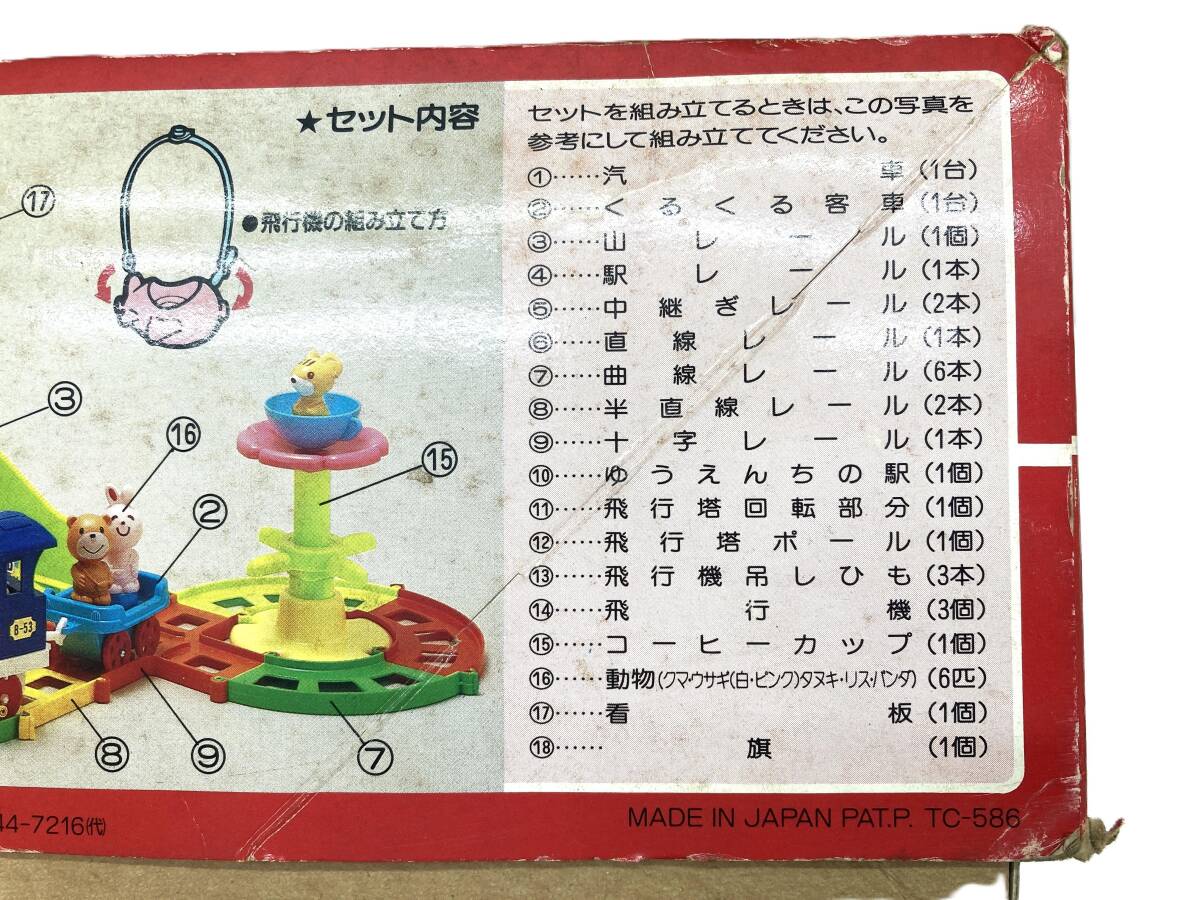 ★セット内容
●飛行機の組み立て方
⑰
③
⑯
⑮
②
B-53
⑧
⑨
⑦
セットを組み立てるときは、この写真を
参考にして組み立ててください。
①……汽車(1台)
②……くるくる客車(1台)
③……山レール(1個)
④……駅レール(1本)
⑤……中継ぎレール(2本)
⑥……直線レール(1本)
⑦……曲線レール(6本)
⑧……半直線レール(2本)
⑨……十字レール(1本)
⑩……ゆうえんちの駅(1個)
⑪……飛行塔回転部分(1個)
⑫……飛行塔ポール(1個)
⑬……飛行機吊しひも(3本)
⑭……飛行機(3個)
⑮……コーヒーカップ(1個)
⑯……動物(クマ・ウサギ(白・ピンク)タヌキ・リス・パンダ)(6匹)
⑰……看板(1個)
⑱……旗(1個)
44-7216(代)
MADE IN JAPAN PAT.P. TC-586